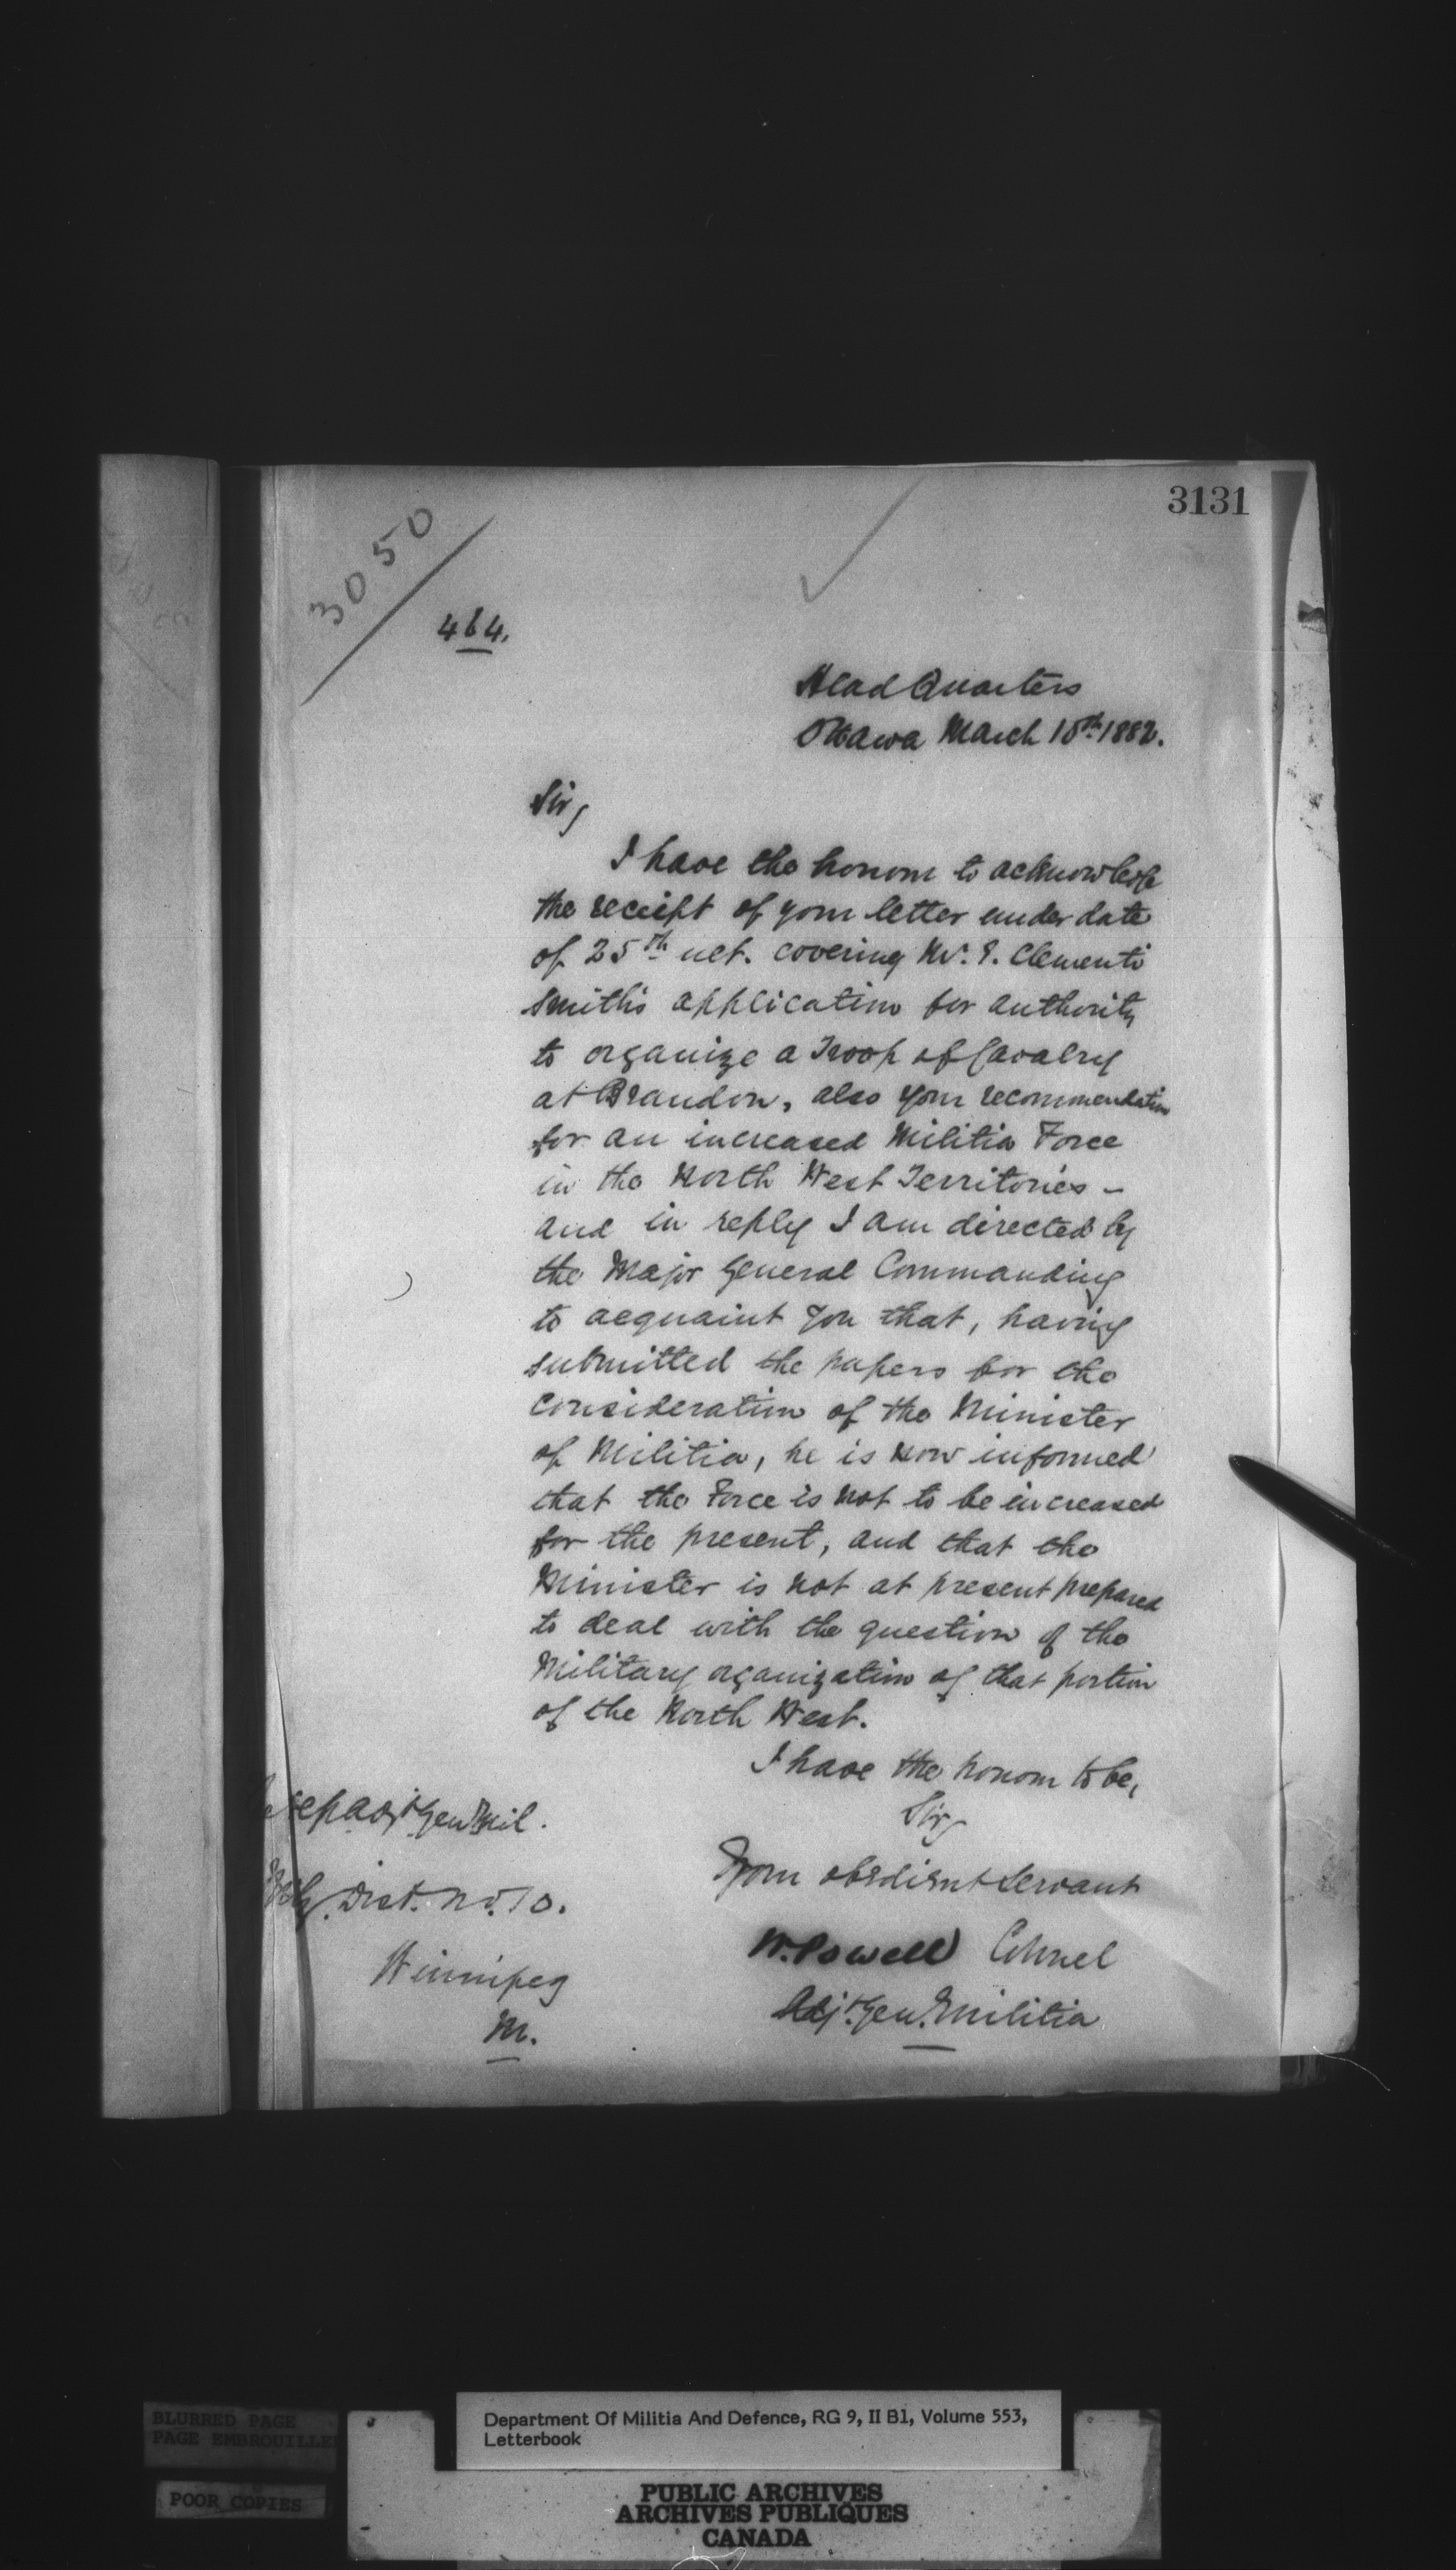 3131
3050
464.
Head Quarters
Ottawa March 15th 1882.
Sir,
I have the honour to acknowledge
the receipt of your letter under date
of 25th ult. covering Mr. E. Clementi
Smith's application for authority
to organize a Troop of Cavalry
at Brandon, also your recommendation
for an increased Militia Force
in the North West Territories -
and in reply I am directed by
the Major General Commanding
to acquaint you that, having
submitted the papers for the
consideration of the Minister
of Militia, he is now informed
that the Force is not to be increased
for the present, and that the
Minister is not at present prepared
to deal with the question of the
Military organization of that portion
of the North West.
I have the honour to be,
Sir,
Your obedient Servant
W. Powell Colonel
Adjt. Gen. Militia
Dep Adjt Gen Mil.
Dist. No. 10.
Winnipeg
M.
BLURRED PAGE
PAGE EMBROUILLEE
POOR COPIES
Department Of Militia And Defence, RG 9, II B1, Volume 553,
Letterbook
PUBLIC ARCHIVES
ARCHIVES PUBLIQUES
CANADA